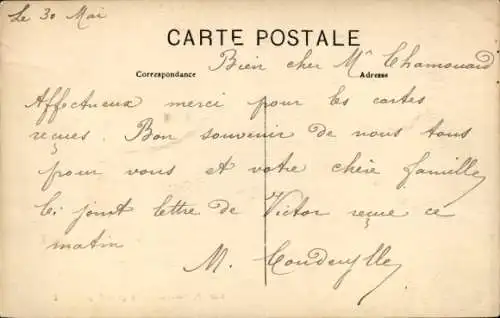 Le 30 Mai
CARTE POSTALE
Correspondance
Adresse
Bien cher Mr Chamouard
Affectueux merci pour les cartes
reçues. Bon souvenir de nous tous
pour vous et votre chère famille
Ci joint lettre de Victor reçue ce
matin
M.